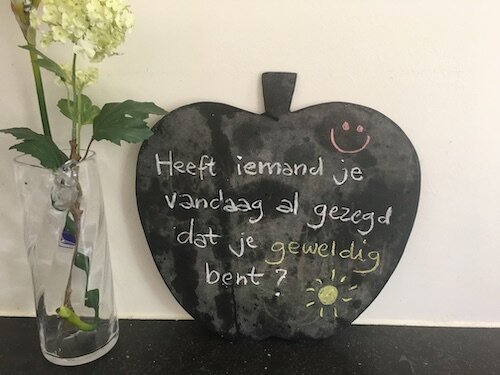 Heeft iemand je
vandaag al gezegd
dat je geweldig
bent?